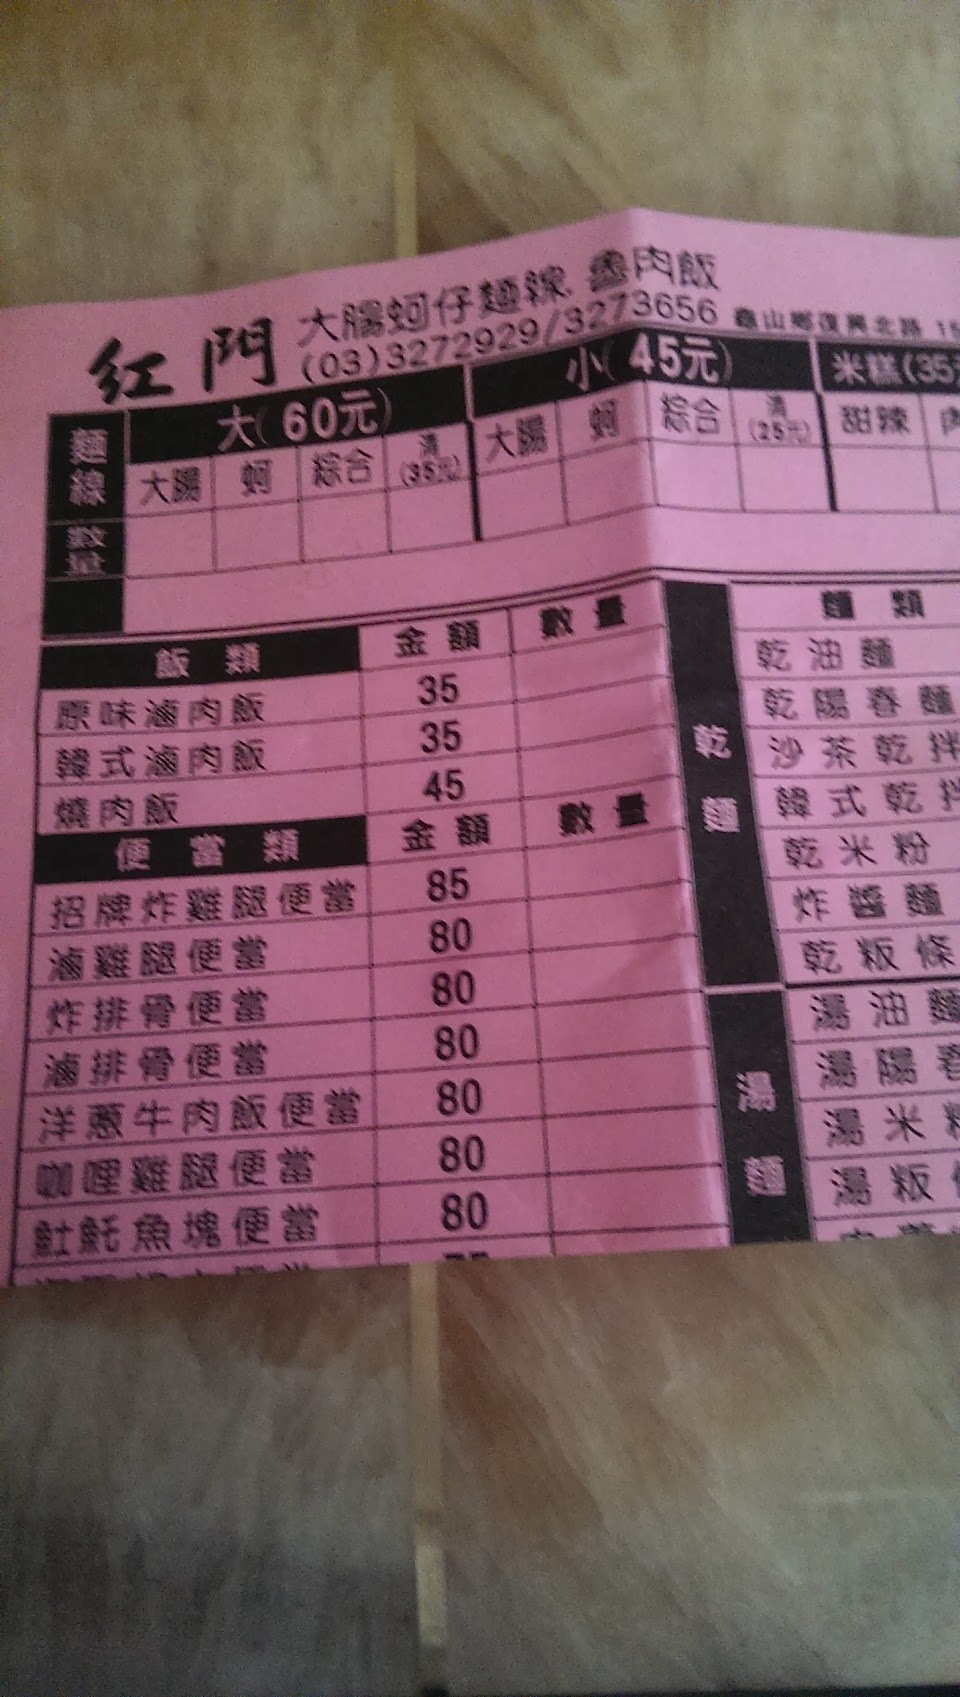 紅門 大腸蚵仔麵線 魯肉飯
(03)3272929/3273656 龜山鄉復興北路 15
麵線 大(60元) 小(45元) 米糕(35元
大腸 蚵 綜合 清(35元) 大腸 蚵 綜合 清(25元) 甜辣 肉
數量
飯類 金額 數量
原味滷肉飯 35
韓式滷肉飯 35
燒肉飯 45
便當類 金額 數量
招牌炸雞腿便當 85
滷雞腿便當 80
炸排骨便當 80
滷排骨便當 80
洋蔥牛肉飯便當 80
咖哩雞腿便當 80
魠魠魚塊便當 80
乾麵 麵類
乾油麵
乾陽春麵
沙茶乾拌
韓式乾拌
乾米粉
炸醬麵
乾粄條
湯麵
湯油麵
湯陽春
湯米粉
湯粄條